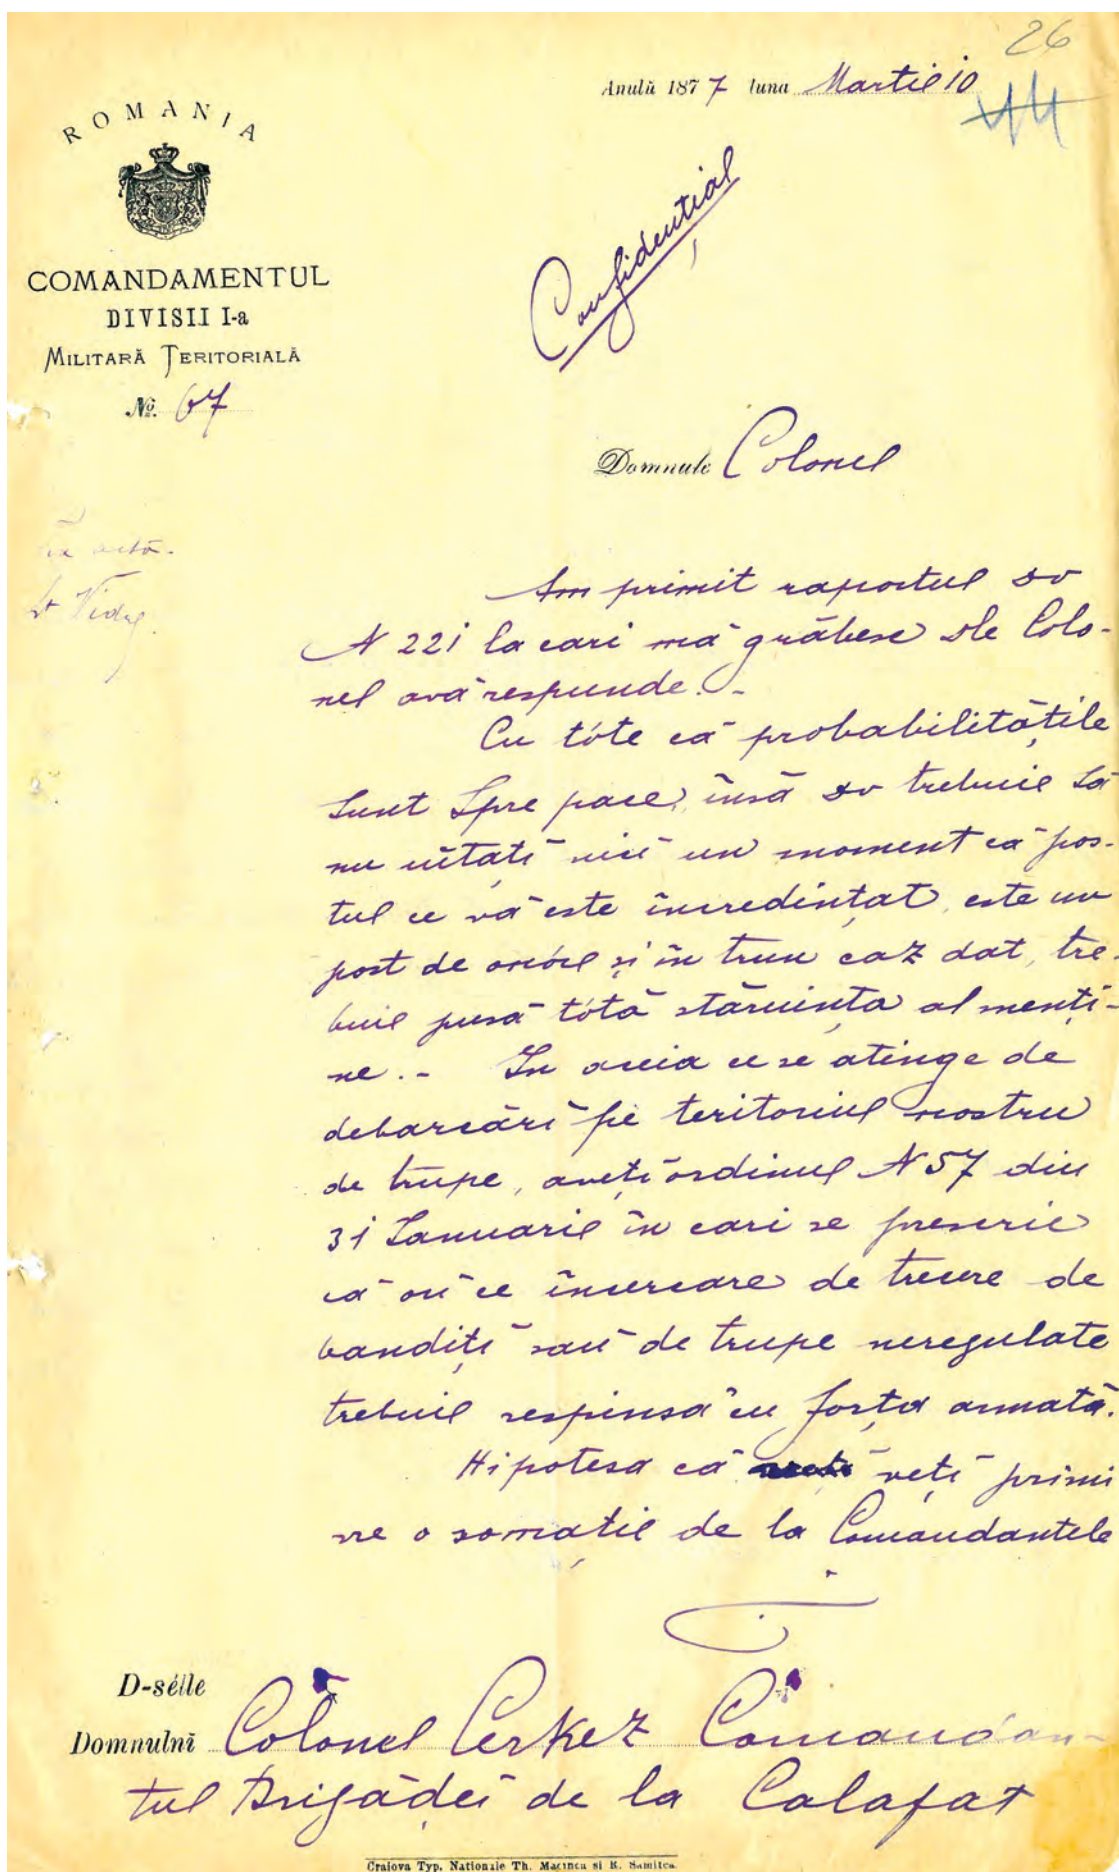 26
Anulŭ 1877 luna Martie 10
44
ROMANIA
Confidențial
COMANDAMENTUL
DIVISII I-a
MILITARĂ TERITORIALĂ
No. 67
Domnule Colonel
La actă.
Am primit raportul dv
N 221 la cari mă grăbesc Dle Colo-
nel avă respunde. -
Cu tóte că probabilitățile
sunt spre pace, însă dv trebuie să
nu uitați nici un moment că pos-
tul ce vă este încredințat, este un
post de onóre și în trun caz dat, tre-
buie pusă tótă stăruința al menți-
ne. - In aceia ce se atinge de
debarcări pe teritoriul nostru
de trupe, aveți ordinul N 57 din
31 Ianuarie în cari se prescrie
că ori ce încercare de trecere de
bandiți sau de trupe neregulate
trebuie respinsă cu forța armată.
Hipotesa că veți primi
vre o somație de la Comandantele
D-séile
Domnulni Colonel Cerkez Comandan-
tul Brigădei de la Calafat
Craiova Typ. Nationale Th. Macinca si R. Samitca.